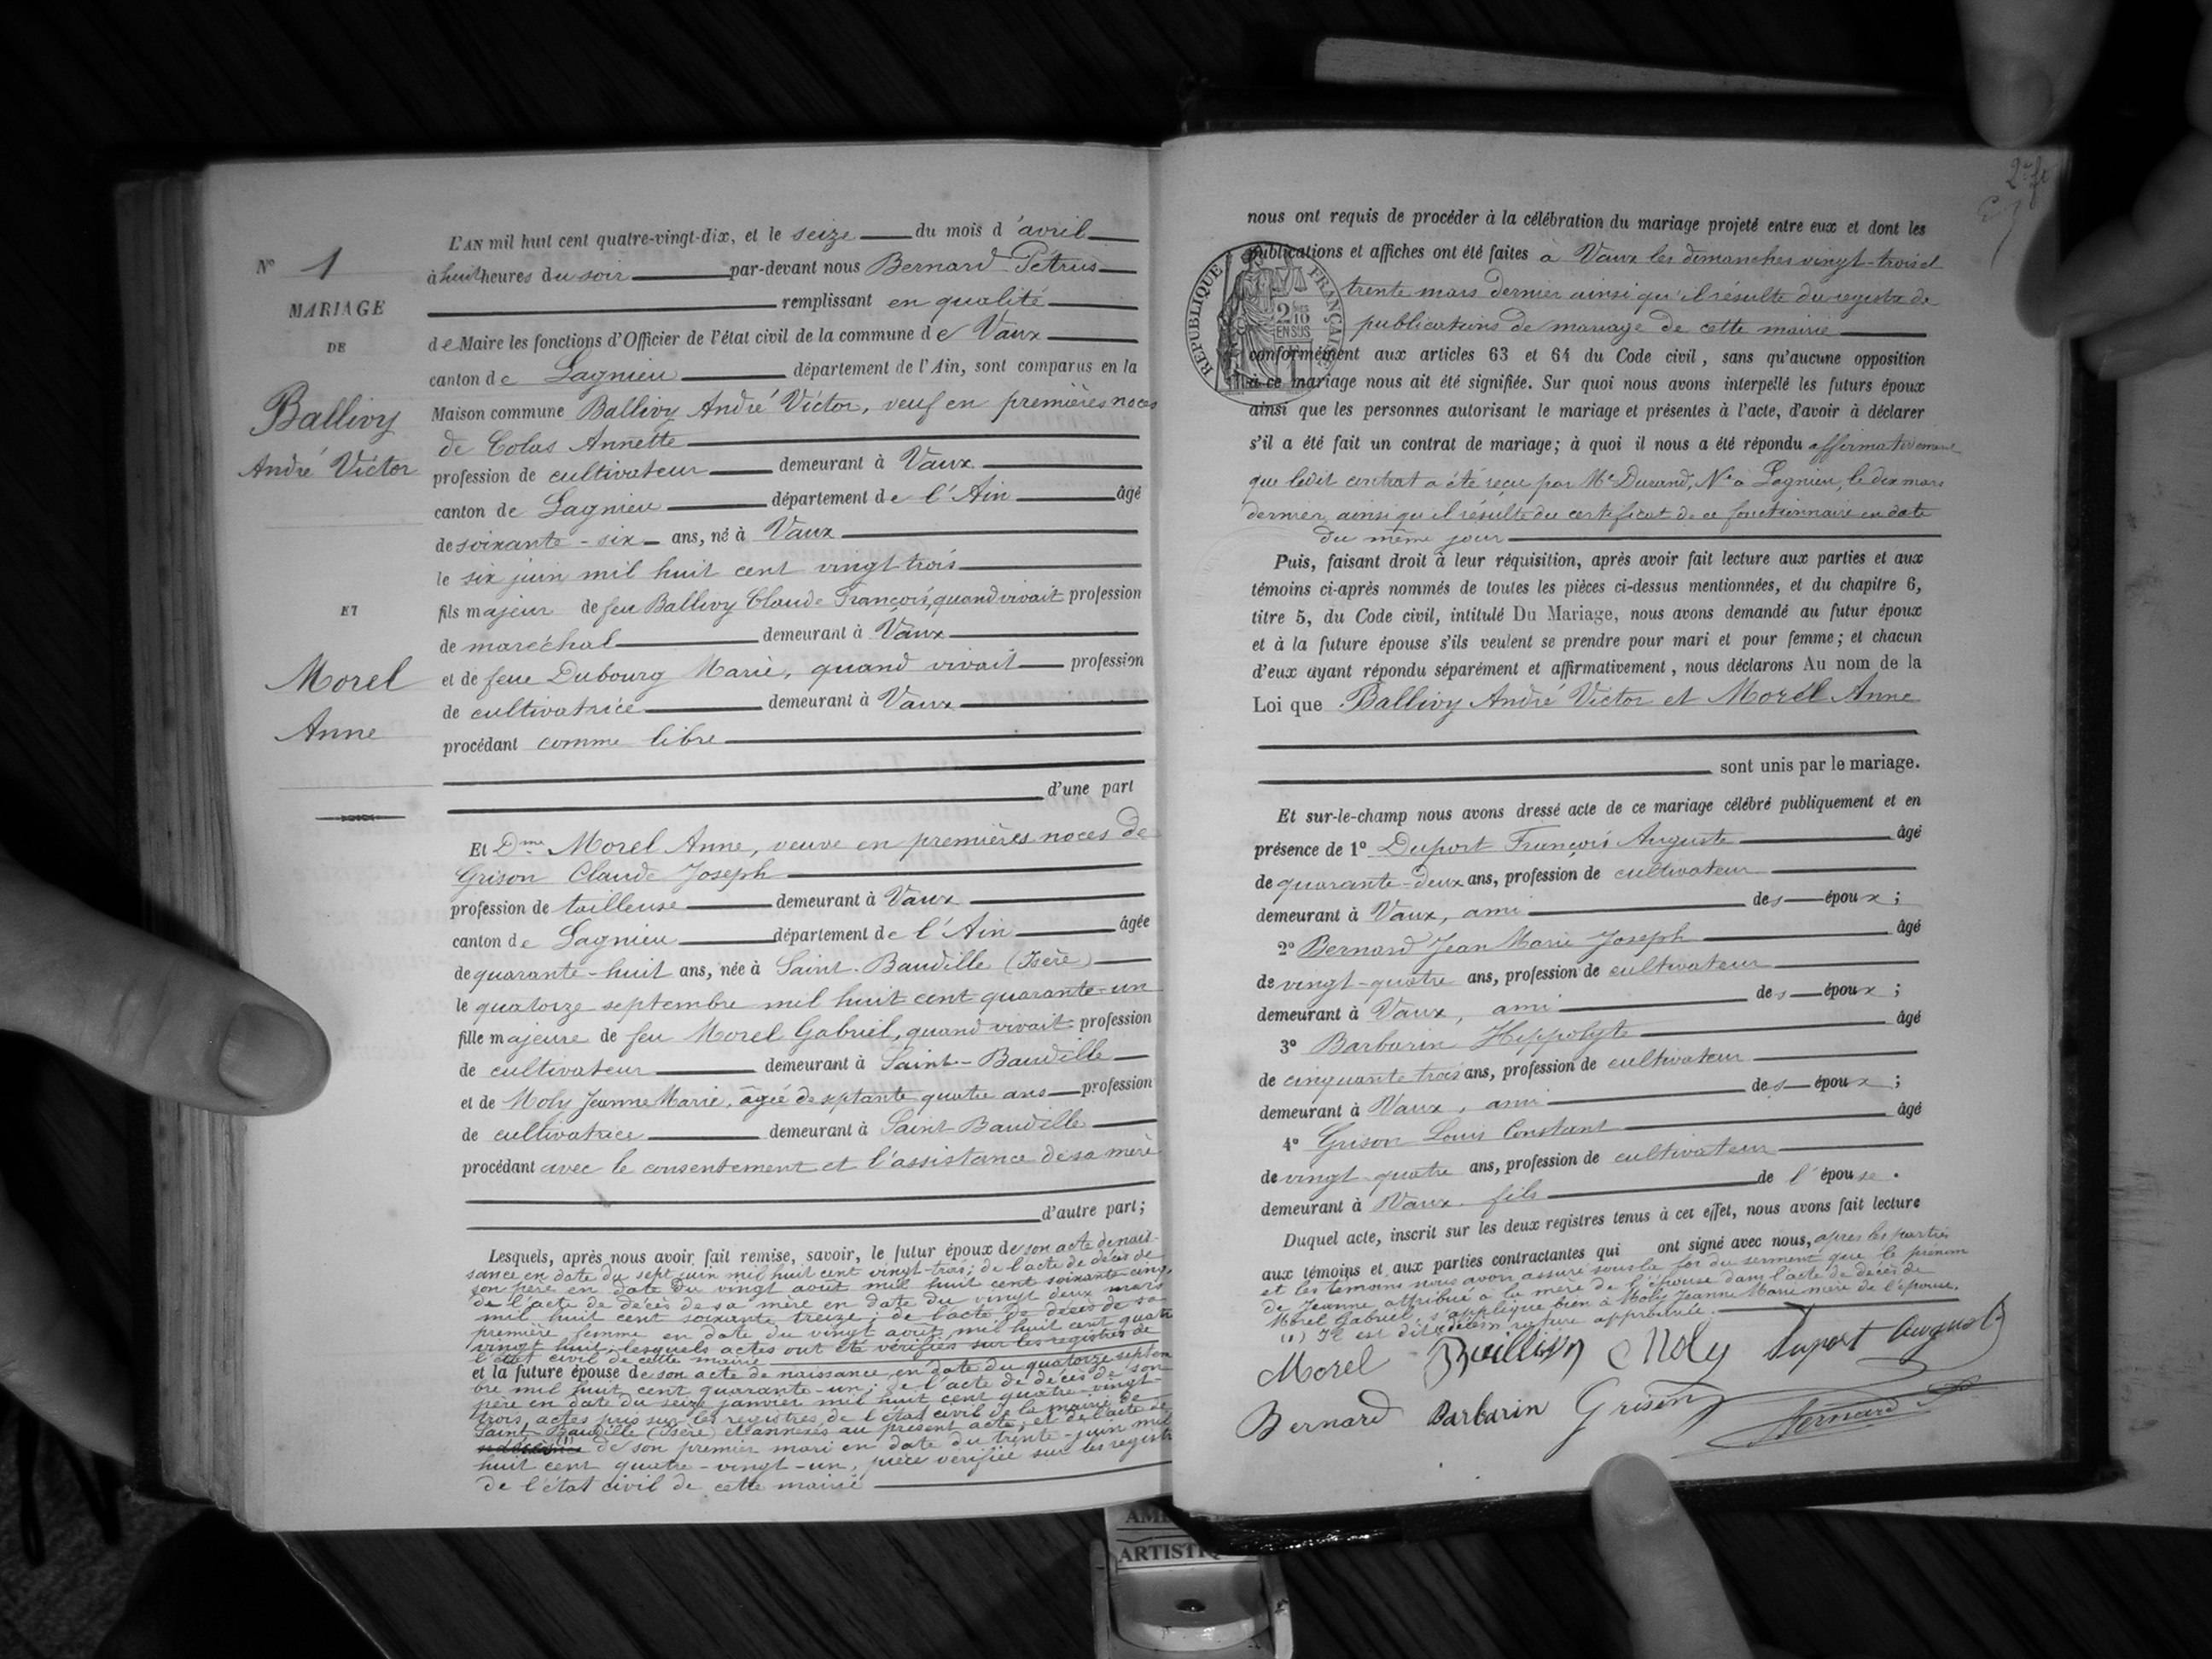 N° 1
MARIAGE
DE
Ballivy
André Victor
ET
Morel
Anne
L'AN mil huit cent quatre-vingt-dix, et le seize du mois d'avril
à huit heures du soir par-devant nous Bernard Pétrus
remplissant en qualité
de Maire les fonctions d'Officier de l'état civil de la commune de Vaux
canton de Lagnieu département de l'Ain, sont comparus en la
Maison commune Ballivy André Victor, veuf en premières noces
de Colas Annette
profession de cultivateur demeurant à Vaux
canton de Lagnieu département de l'Ain âgé
de soixante-six ans, né à Vaux
le six juin mil huit cent vingt trois
fils majeur de feu Ballivy Claude François, quand vivait profession
de maréchal demeurant à Vaux
et de feue Dubourg Marie, quand vivait profession
de cultivatrice demeurant à Vaux
procédant comme libre
d'une part
Et Dme Morel Anne, veuve en premières noces de
Grison Claude Joseph
profession de tailleuse demeurant à Vaux
canton de Lagnieu département de l'Ain âgée
de quarante-huit ans, née à Saint-Baudille (Isère)
le quatorze septembre mil huit cent quarante-un
fille majeure de feu Morel Gabriel, quand vivait profession
de cultivateur demeurant à Saint-Baudille
et de Moly Jeanne Marie, âgée de septante quatre ans profession
de cultivatrice demeurant à Saint-Baudille
procédant avec le consentement et l'assistance de sa mère
d'autre part;
Lesquels, après nous avoir fait remise, savoir, le futur époux de son acte de nais-
sance en date du sept juin mil huit cent vingt-trois; de l'acte de décès de
son père en date du vingt août mil huit cent soixante cinq,
de l'acte de décès de sa mère en date du vingt deux mars
mil huit cent soixante treize; de l'acte de décès de sa
première femme en date du vingt août mil huit cent quatre
vingt huit; lesquels actes ont été vérifiés sur les registres de
l'état civil de cette mairie
et la future épouse de son acte de naissance en date du quatorze septem
bre mil huit cent quarante-un; de l'acte de décès de son
père en date du seize janvier mil huit cent quatre-vingt-
trois, actes pris sur les registres de l'état civil de la mairie de
Saint-Baudille (Isère) et annexés au présent acte; et de l'acte de
de son premier mari en date du trente-juin mil
huit cent quatre-vingt-un, pièce vérifiée sur les registr
de l'état civil de cette mairie
nous ont requis de procéder à la célébration du mariage projeté entre eux et dont les
publications et affiches ont été faites à Vaux les dimanches vingt-trois et
trente mars dernier ainsi qu'il résulte du registre de
publications de mariage de cette mairie
conformément aux articles 63 et 64 du Code civil, sans qu'aucune opposition
à ce mariage nous ait été signifiée. Sur quoi nous avons interpellé les futurs époux
ainsi que les personnes autorisant le mariage et présentes à l'acte, d'avoir à déclarer
s'il a été fait un contrat de mariage; à quoi il nous a été répondu affirmativement
que ledit contrat a été reçu par Me Durand, Nre à Lagnieu, le dix mars
dernier, ainsi qu'il résulte du certificat de ce fonctionnaire en date
du même jour
Puis, faisant droit à leur réquisition, après avoir fait lecture aux parties et aux
témoins ci-après nommés de toutes les pièces ci-dessus mentionnées, et du chapitre 6,
titre 5, du Code civil, intitulé Du Mariage, nous avons demandé au futur époux
et à la future épouse s'ils veulent se prendre pour mari et pour femme; et chacun
d'eux ayant répondu séparément et affirmativement, nous déclarons Au nom de la
Loi que Ballivy André Victor et Morel Anne
sont unis par le mariage.
Et sur-le-champ nous avons dressé acte de ce mariage célébré publiquement et en
présence de 1° Duport François Auguste âgé
de quarante-deux ans, profession de cultivateur
demeurant à Vaux, ami des époux;
2° Bernard Jean Marie Joseph âgé
de vingt-quatre ans, profession de cultivateur
demeurant à Vaux, ami des époux;
3° Barbarin Hippolyte âgé
de cinquante trois ans, profession de cultivateur
demeurant à Vaux, ami des époux;
4° Grison Louis Constant âgé
de vingt quatre ans, profession de cultivateur
demeurant à Vaux, fils de l'épouse.
Duquel acte, inscrit sur les deux registres tenus à cet effet, nous avons fait lecture
aux témoins et aux parties contractantes qui ont signé avec nous, après les parties
et les témoins nous avoir assuré sous la foi du serment que le prénom
de Jeanne attribué à la mère de l'épouse dans l'acte de décès de
Morel Gabriel, s'applique bien à Moly Jeanne Marie mère de l'épouse.
(1) Il est dit rature approuvée.
Morel Ballivy Moly Duport August
Bernard Barbarin Grison Bernard P
REPUBLIQUE FRANÇAISE
2/10 EN SUS
ARTISTI